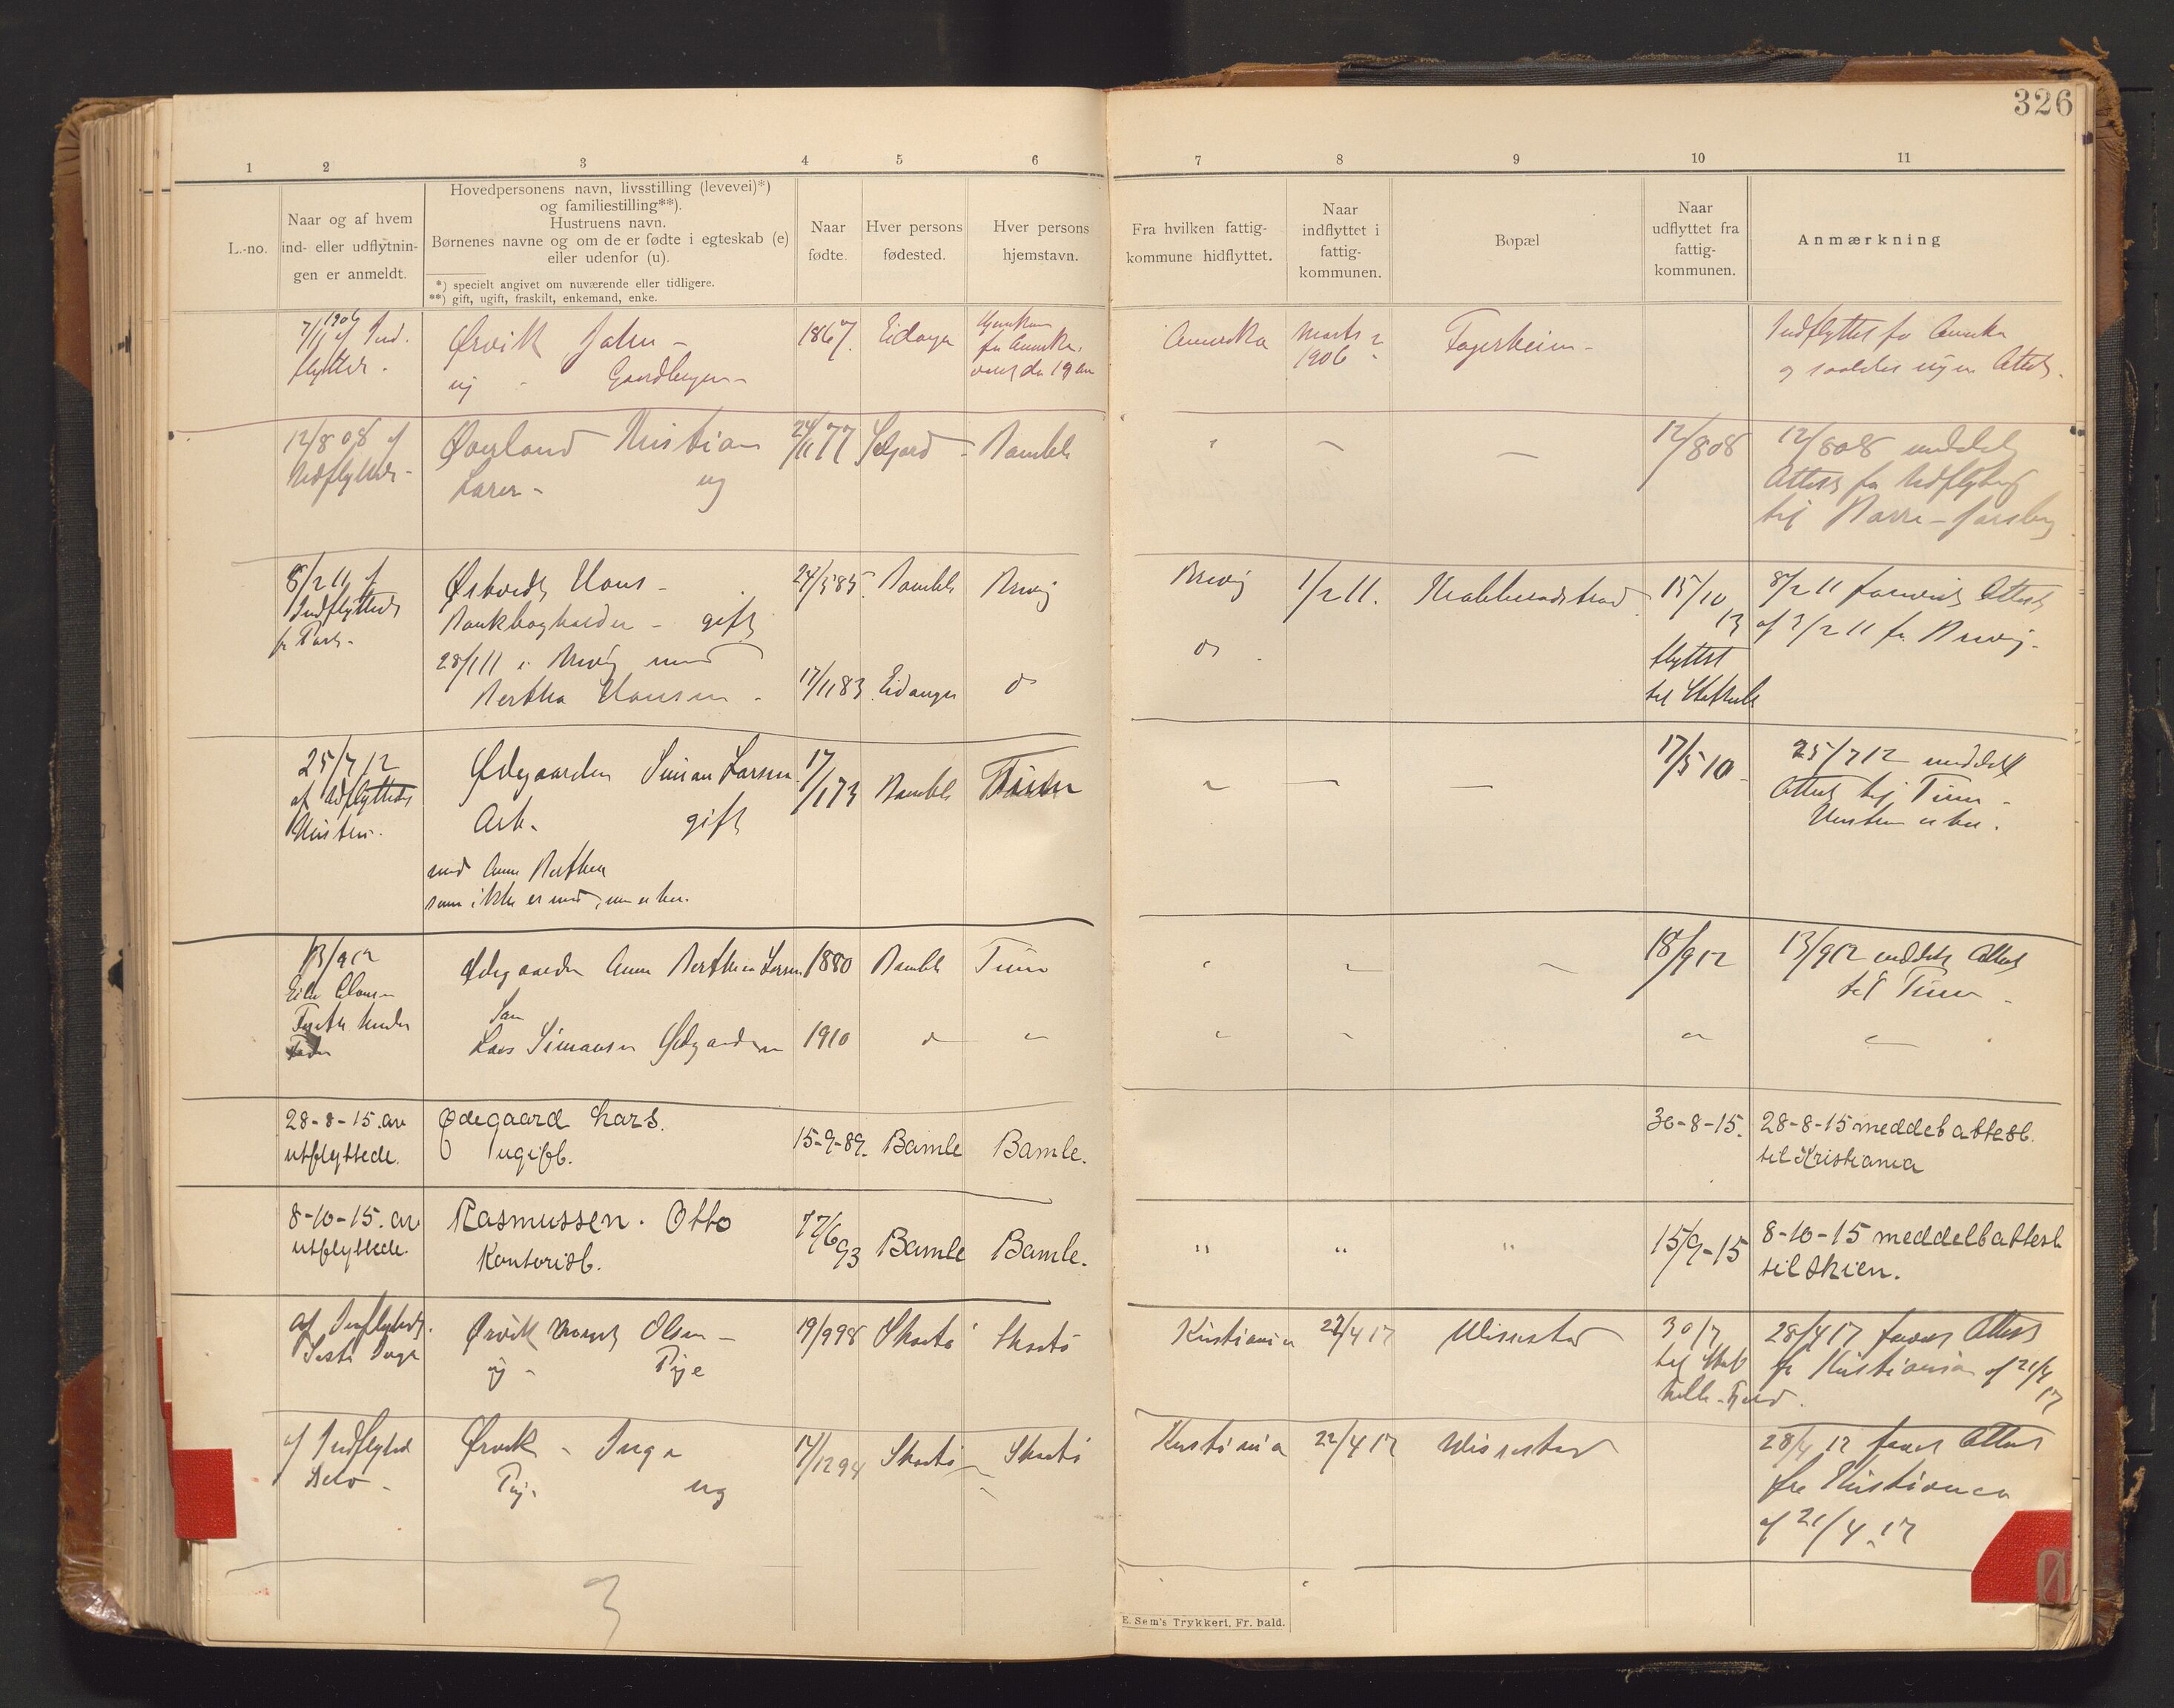 326
1 2 3 4 5 6 7 8 9 10 11
L.-no.
Naar og af hvem
ind- eller udflytnin-
gen er anmeldt.
Hovedpersonens navn, livsstilling (levevei)*)
og familiestilling**).
Hustruens navn.
Børnenes navne og om de er fødte i egteskab (e)
eller udenfor (u).
*) specielt angivet om nuværende eller tidligere.
**) gift, ugift, fraskilt, enkemand, enke.
Naar
fødte.
Hver persons
fødested.
Hver persons
hjemstavn.
Fra hvilken fattig-
kommune hidflyttet.
Naar
indflyttet i
fattig-
kommunen.
Bopæl
Naar
udflyttet fra
fattig-
kommunen.
Anmærkning
7/11 1906 af Ind.
flyttede.
Ørvik John -
ug - Gaardbruger -
1867. Eidanger
fra Amerika
Amerika Marts
1906
Fagerheim -
Indflyttet fra Amerika
og saaledes ingen Attest.
12/8 08 af
Udflyttede -
Øverland Kristian
Lærer - ug
24/11 77 Seljord - Bamble
12/8 08
12/8 08 meddelt
Attest for Udflytning
til Nørre-Jarlsberg
8/2 11 af
Indflyttede
pr Post -
Østvedt Hans -
Bankbogholder - gift
28/1 11 i Brevig med
Bertha Hansen -
24/5 85. Bamble Brevig
17/11 83. Eidanger do
Brevig 1/2 11. Krabberødstrand
do
15/10
13
flyttet
til Stathelle
8/2 11 forevist Attest
af 3/2 11 fra Brevig.
25/7 12
af Udflyttedes
Hustru.
Ødegaarden Simon Larsen
Arb. gift
med Anne Berthea
som ikke er med, men er her.
17/1 73 Bamble Tinn
17/5 10
25/7 12 meddelt
Attest til Tinn -
Hustru er her.
13/9 12
Ødegaarden Anne Berthea Larsen 1880 Bamble Tinn
Søn
Lars Simonsen Ødegaarden 1910 do "
18/9 12
13/9 12 meddelt Attest
til Tinn -
28-8-15. av
utflyttede.
Ødegaard Lars.
ugift.
15-9-89. Bamle Bamle.
30-8-15. 28-8-15 meddelt attest.
til Kristiania
8-10-15. av
utflyttede.
Rasmussen. Otto
Kontorist.
17/6 93 Bamle Bamle.
" " "
15/9-15
8-10-15 meddelt attest
til Skien.
af Indflyttedes
Søster Inga
Ørvik Olsen -
ug - Pige
19/9 98 Skaatø Skaatø
Kristiania 22/4 17
30/7
til Stat-
helle
28/4 17 forevist Attest
fra Kristiania af 21/4
17
af Indflyttede
selv -
Ørvik - Inga
Pige ug
17/12 94 Skaatø - Skaatø
Kristiania 22/4 17
28/4 17 forevist Attest
fra Kristiania
af 21/4 17
3
E. Sem's Trykkeri, Fr. hald.
Ø